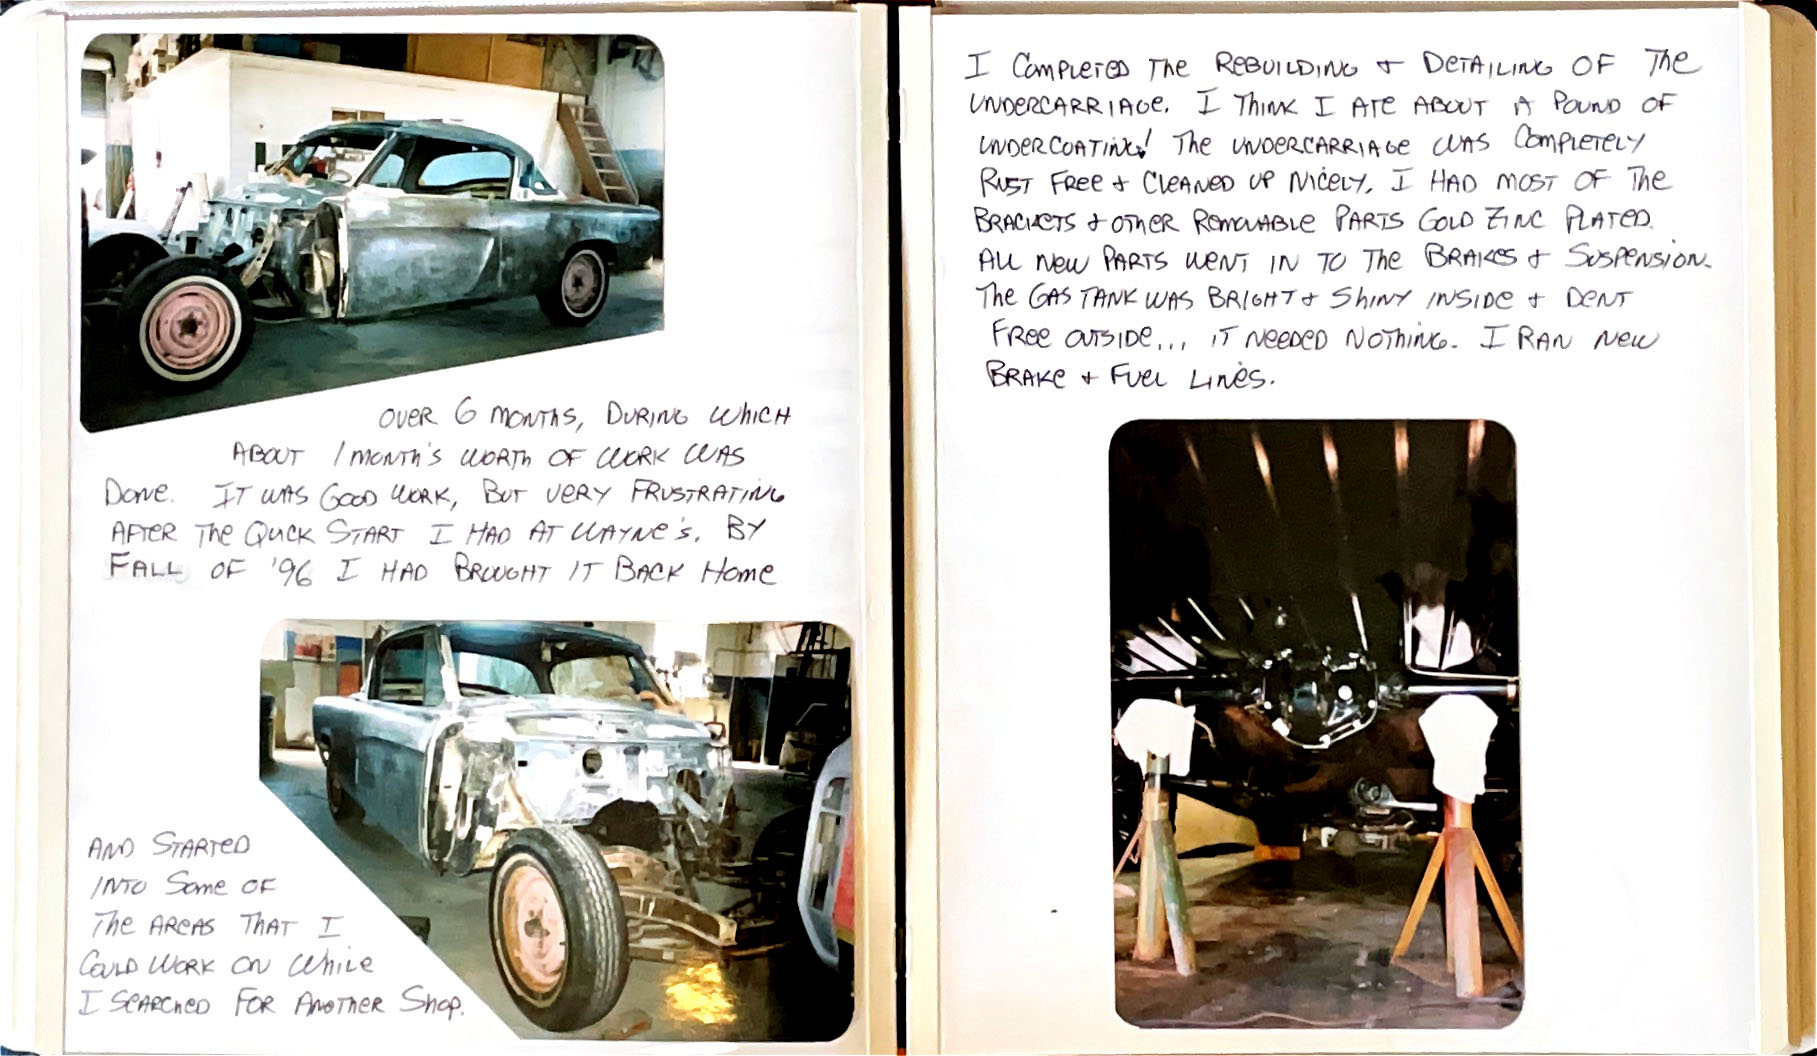 OVER 6 MONTHS, DURING WHICH
ABOUT 1 MONTH'S WORTH OF WORK WAS
DONE. IT WAS GOOD WORK, BUT VERY FRUSTRATING
AFTER THE QUICK START I HAD AT WAYNE'S. BY
FALL OF '96 I HAD BROUGHT IT BACK HOME
AND STARTED
INTO SOME OF
THE AREAS THAT I
COULD WORK ON WHILE
I SEARCHED FOR ANOTHER SHOP.
I COMPLETED THE REBUILDING & DETAILING OF THE
UNDERCARRIAGE. I THINK I ATE ABOUT A POUND OF
UNDERCOATING! THE UNDERCARRIAGE WAS COMPLETELY
RUST FREE & CLEANED UP NICELY. I HAD MOST OF THE
BRACKETS & OTHER REMOVABLE PARTS GOLD ZINC PLATED.
ALL NEW PARTS WENT IN TO THE BRAKES & SUSPENSION.
THE GAS TANK WAS BRIGHT & SHINY INSIDE & DENT
FREE OUTSIDE... IT NEEDED NOTHING. I RAN NEW
BRAKE & FUEL LINES.